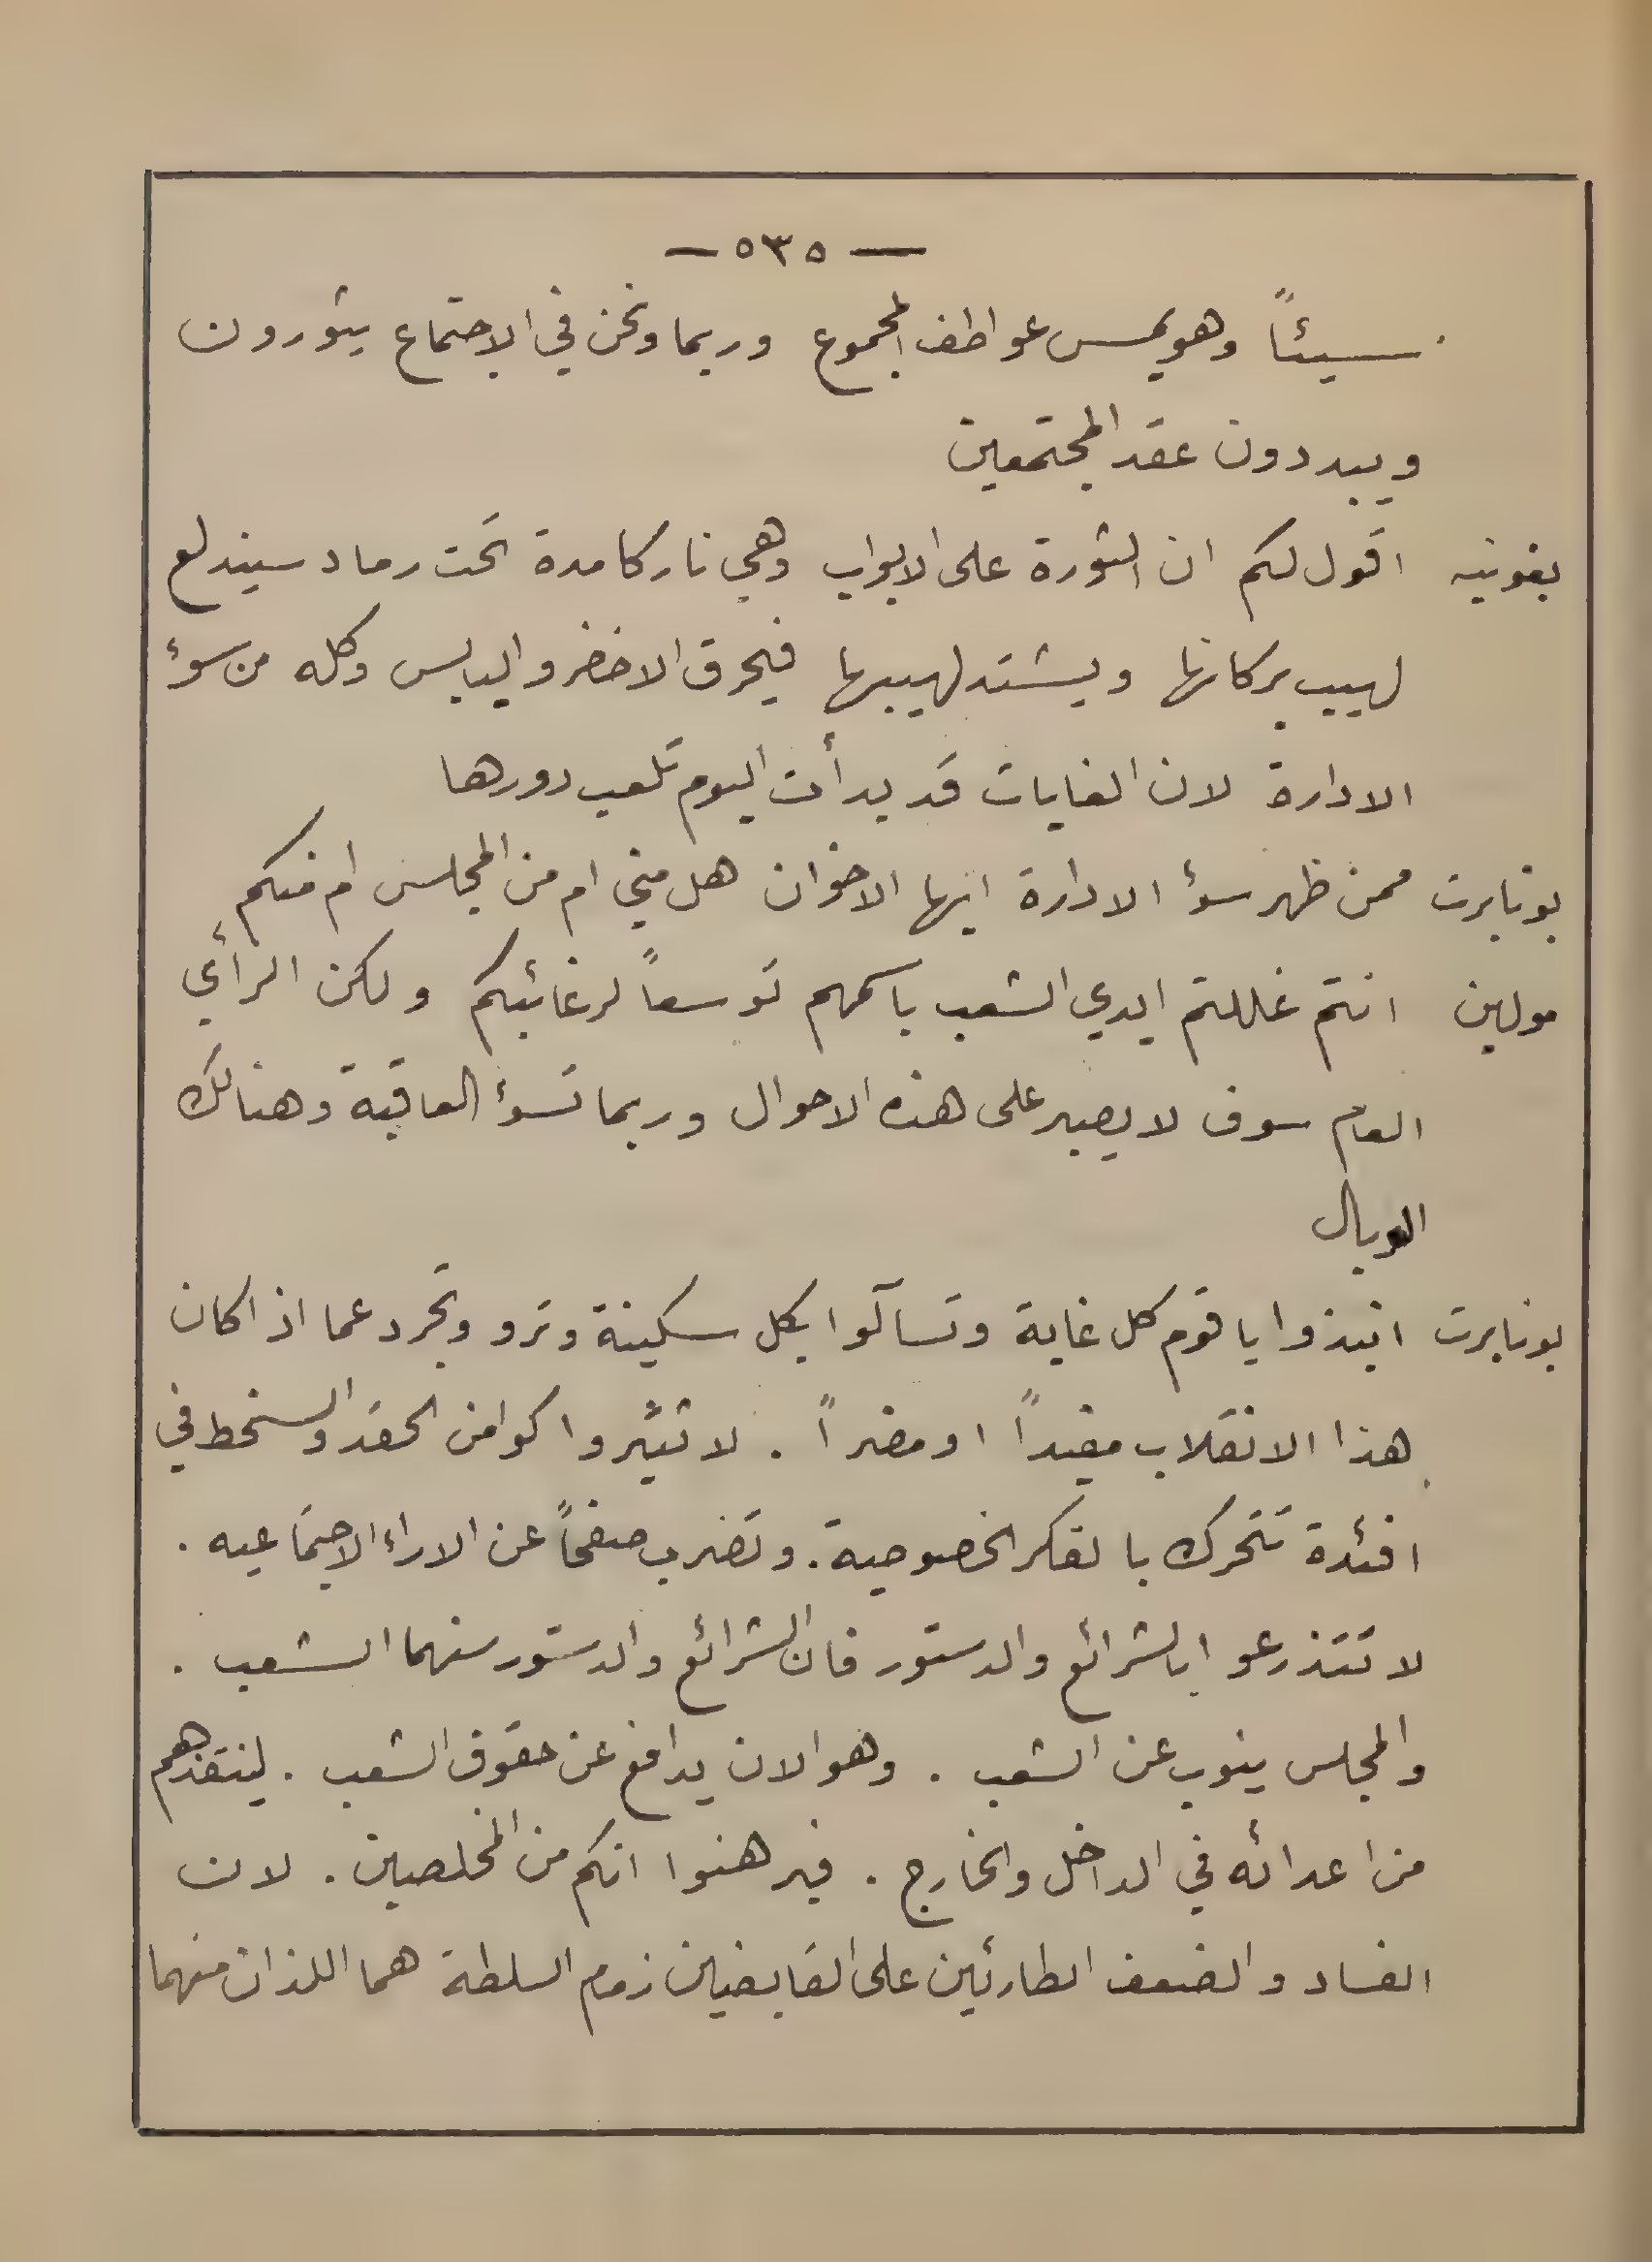 — ٥٣٥ —
سيئاً وهو يمس عواطف المجموع وربما ونحن في الاجتماع يثورون
ويبددون عقد المجتمعين
بغونيه اقول لكم ان الثورة على الابواب وهي نار كامدة تحت رماد سيندلع
لهيب بركانها ويشتد لهيبها فيحرق الاخضر واليابس وكله من سوء
الادارة لان الغايات قد بدأت اليوم تلعب دورها
بونابرت ممن ظهر سؤ الادارة ايها الاخوان هل مني ام من المجلس ام منكم
مولين انتم غللتم ايدي الشعب باسمهم توسعاً لرغائبكم ولكن الرأي
العام سوف لا يصبر على هذه الاحوال وربما تسؤ العاقبة وهنالك
الوبال
بونابرت انبذوا يا قوم كل غاية وتسآلوا بكل سكينة وترو وتجرد عما اذا كان
هذا الانقلاب مفيداً او مضراً . لا تثيروا كوامن الحقد والسخط في
افئدة تتحرك بالفكر الخصوصية . وتضرب صفحاً عن الاراء الاجتماعيه .
لا تتذرعوا بالشرائع والدستور فان الشرائع والدستور سنهما الشعب .
والمجلس ينوب عن الشعب . وهو الان يدافع عن حقوق الشعب . لينقذهم
من اعدائه في الداخل والخارج . فبرهنوا انكم من المخلصين . لان
الفساد والضعف الطارئين على القابضين زمام السلطة هما اللذان منهما